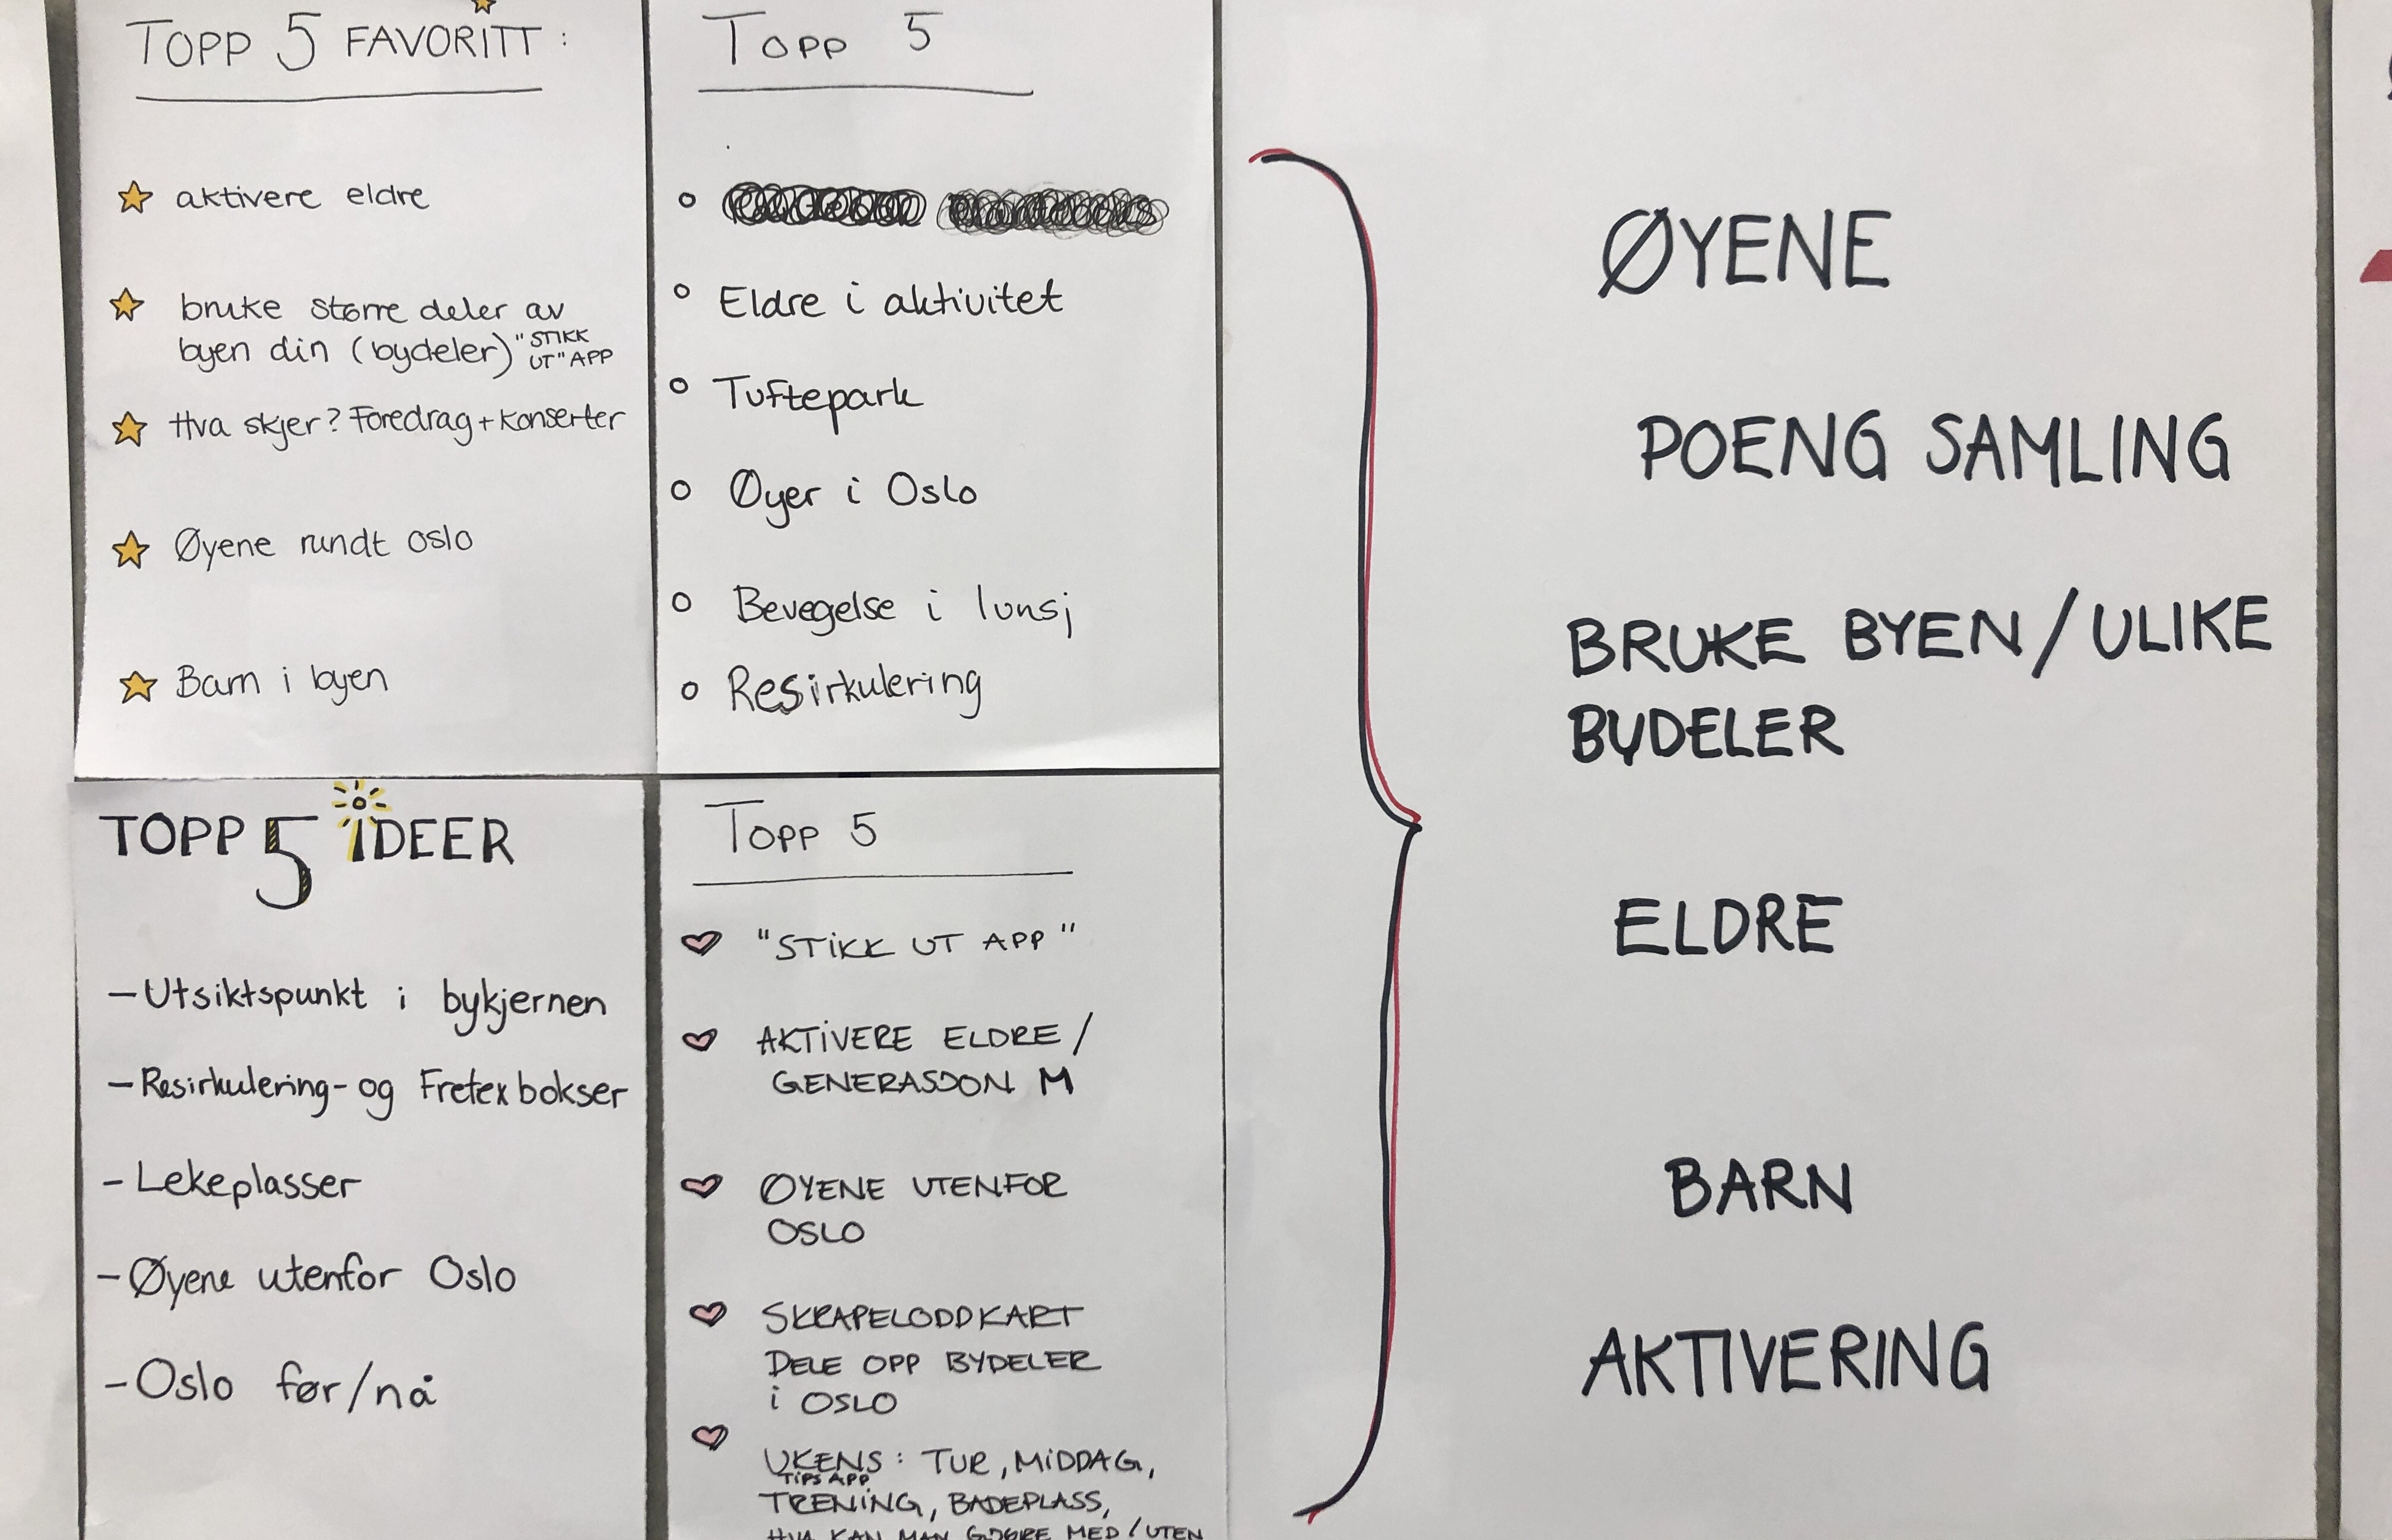 TOPP 5 FAVORITT :
aktivere eldre
bruke større deler av
byen din (bydeler) "STIKK
UT" APP
Hva skjer? Foredrag + konserter
Øyene rundt oslo
Barn i byen
TOPP 5
Eldre i aktivitet
Tuftepark
Øyer i Oslo
Bevegelse i lunsj
Resirkulering
TOPP 5 IDEER
- Utsiktspunkt i bykjernen
- Resirkulering- og Fretex bokser
- Lekeplasser
- Øyene utenfor Oslo
- Oslo før/nå
TOPP 5
"STIKK UT APP"
AKTIVERE ELDRE /
GENERASJON M
ØYENE UTENFOR
OSLO
SKRAPELODDKART
DELE OPP BYDELER
i OSLO
UKENS : TUR, MIDDAG,
TIPS APP
TRENING, BADEPLASS,
HVA KAN MAN GJØRE MED / UTEN
ØYENE
POENG SAMLING
BRUKE BYEN / ULIKE
BYDELER
ELDRE
BARN
AKTIVERING